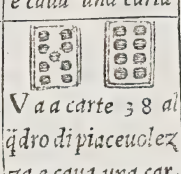 e caua una carta
V a a carte 3 8 al
q̃dro di piaceuolez
za e caua una car